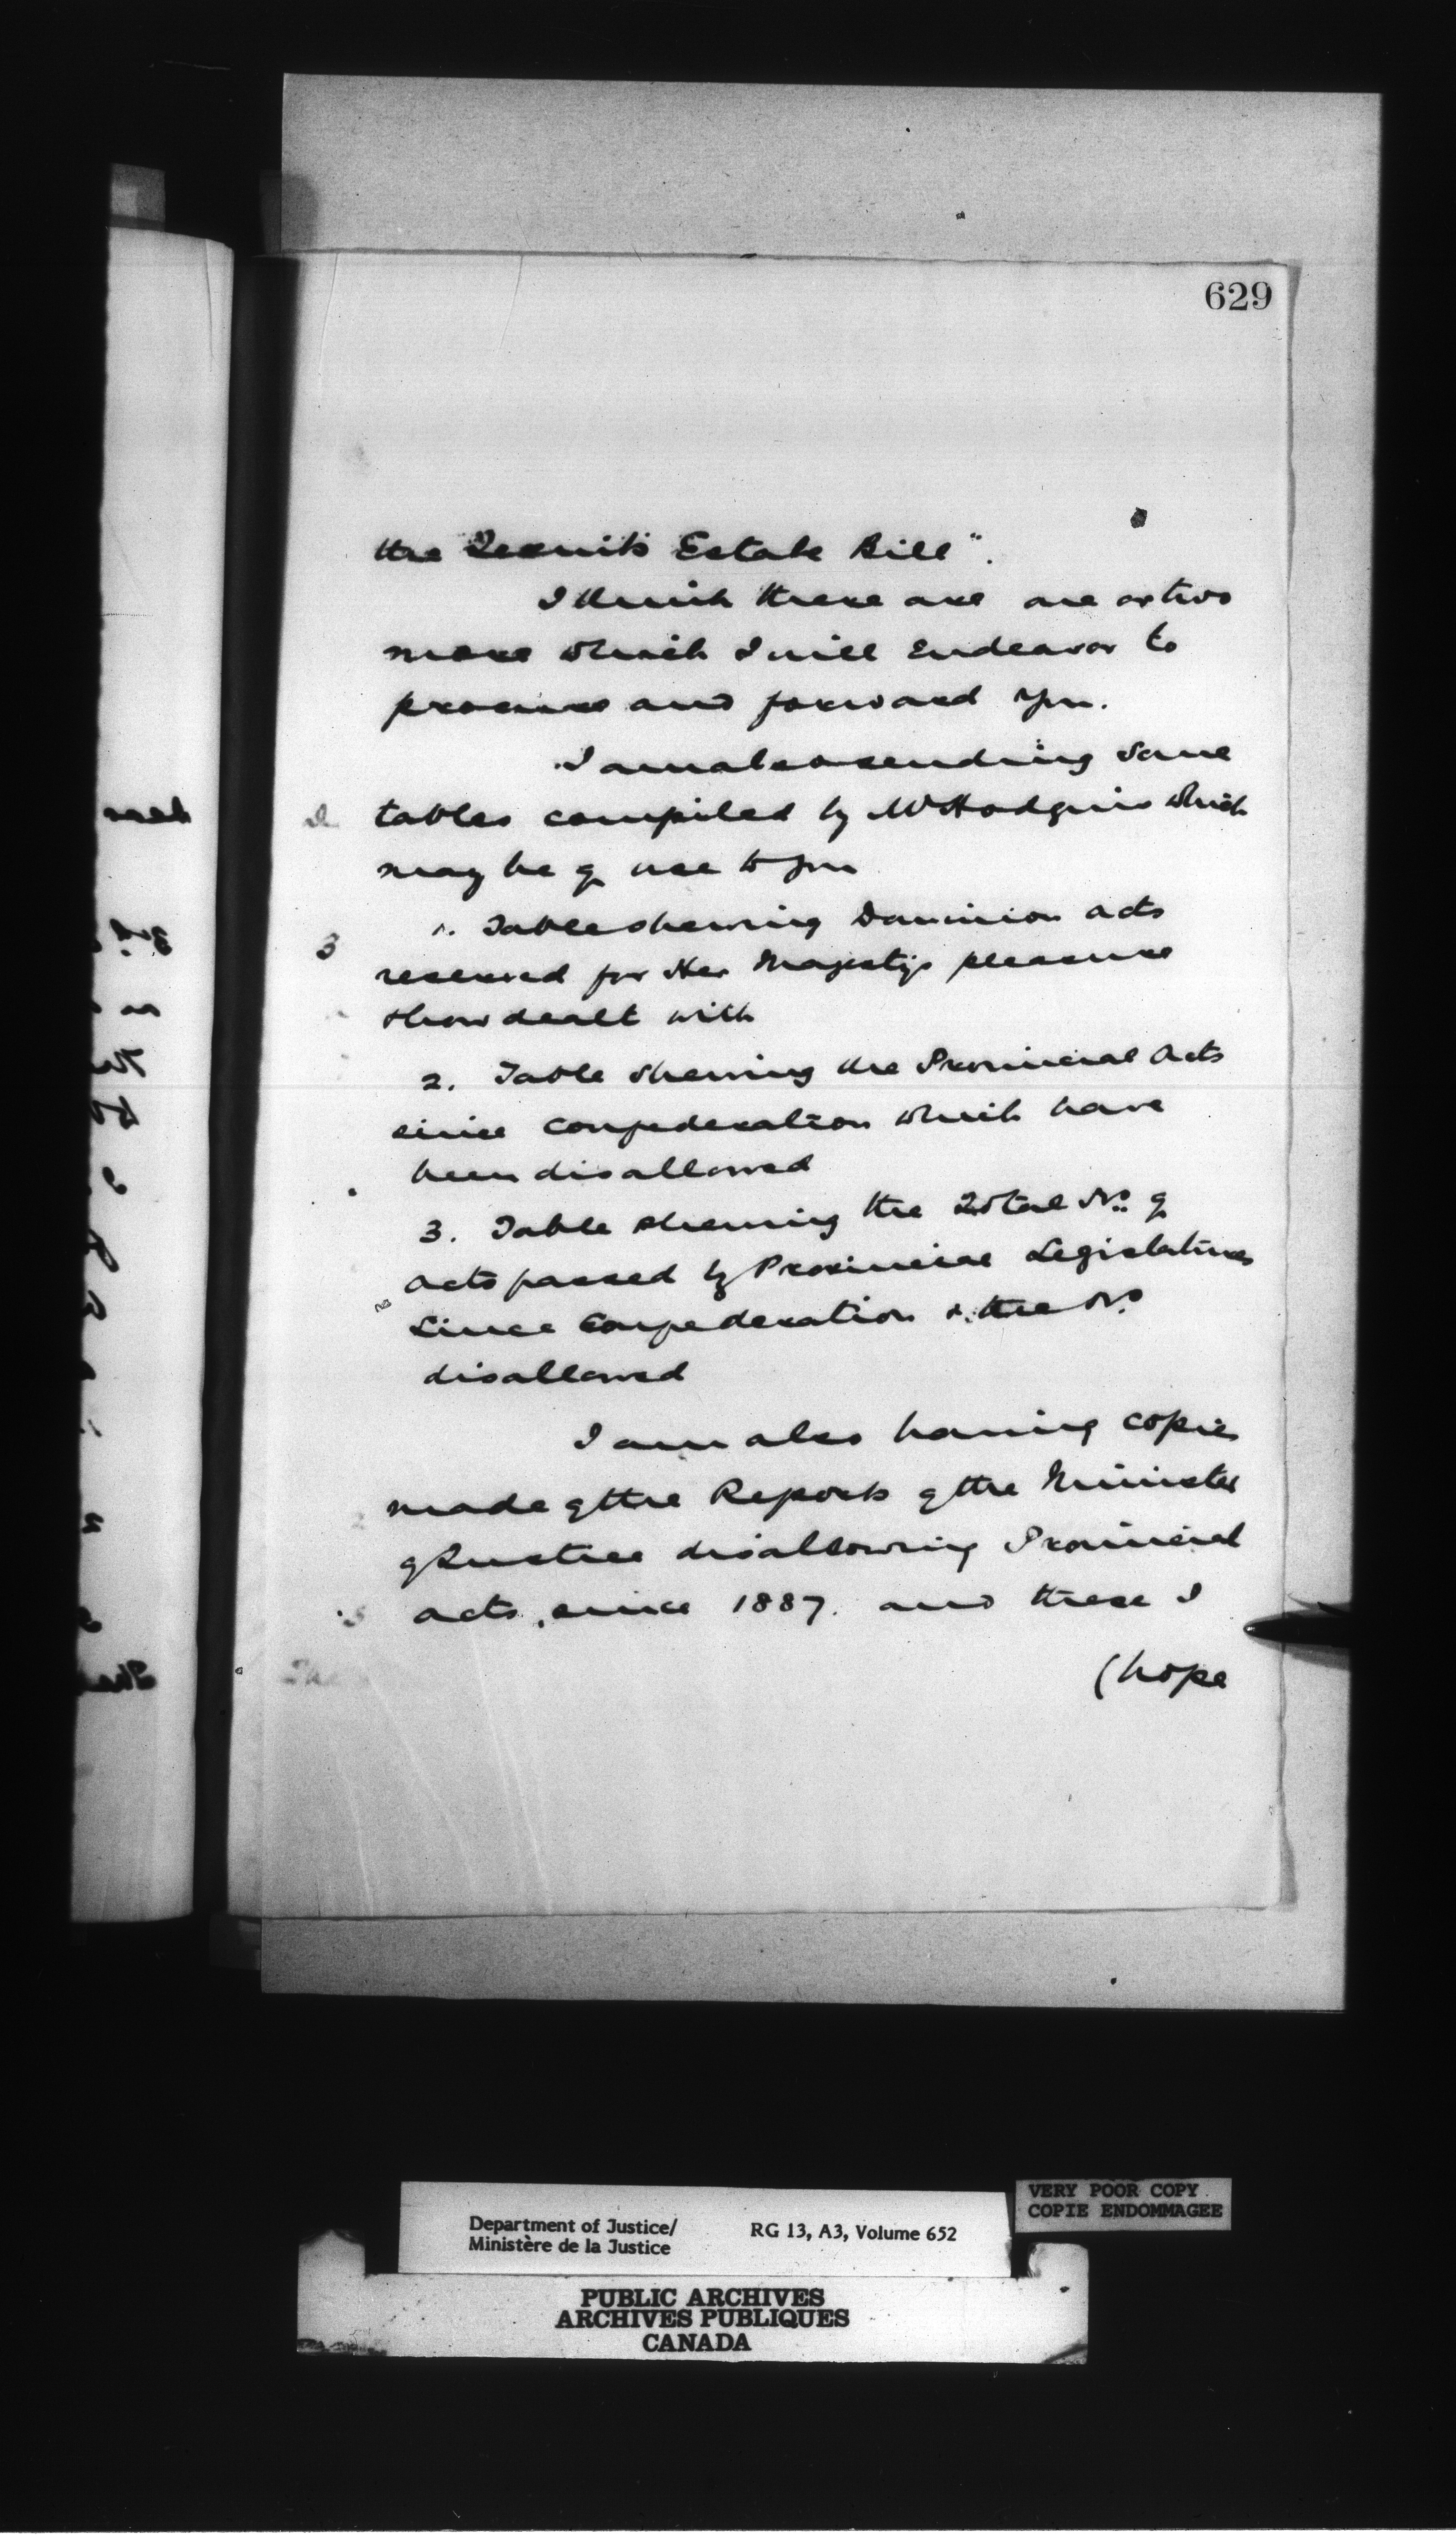 629
the Jesuits Estate Bill".
I think there are one or two
more which I will Endeavor to
procure and forward you.
I am also sending some
tables compiled by Mr Hodgins which
may be of use to you
1. Table shewing Dominion acts
reserved for Her Majestys pleasure
& how dealt with
2. Table shewing the Provincial Acts
since confederation which have
been disallowed
3. Table shewing the Total No. of
acts passed by Provincial Legislatures
since Confederation & the No.
disallowed
I am also having copies
made of the Reports of the Minister
of Justice disallowing Provincial
acts, since 1887. and these I
(hope
VERY POOR COPY
COPIE ENDOMMAGEE
Department of Justice/ RG 13, A3, Volume 652
Ministère de la Justice
PUBLIC ARCHIVES
ARCHIVES PUBLIQUES
CANADA